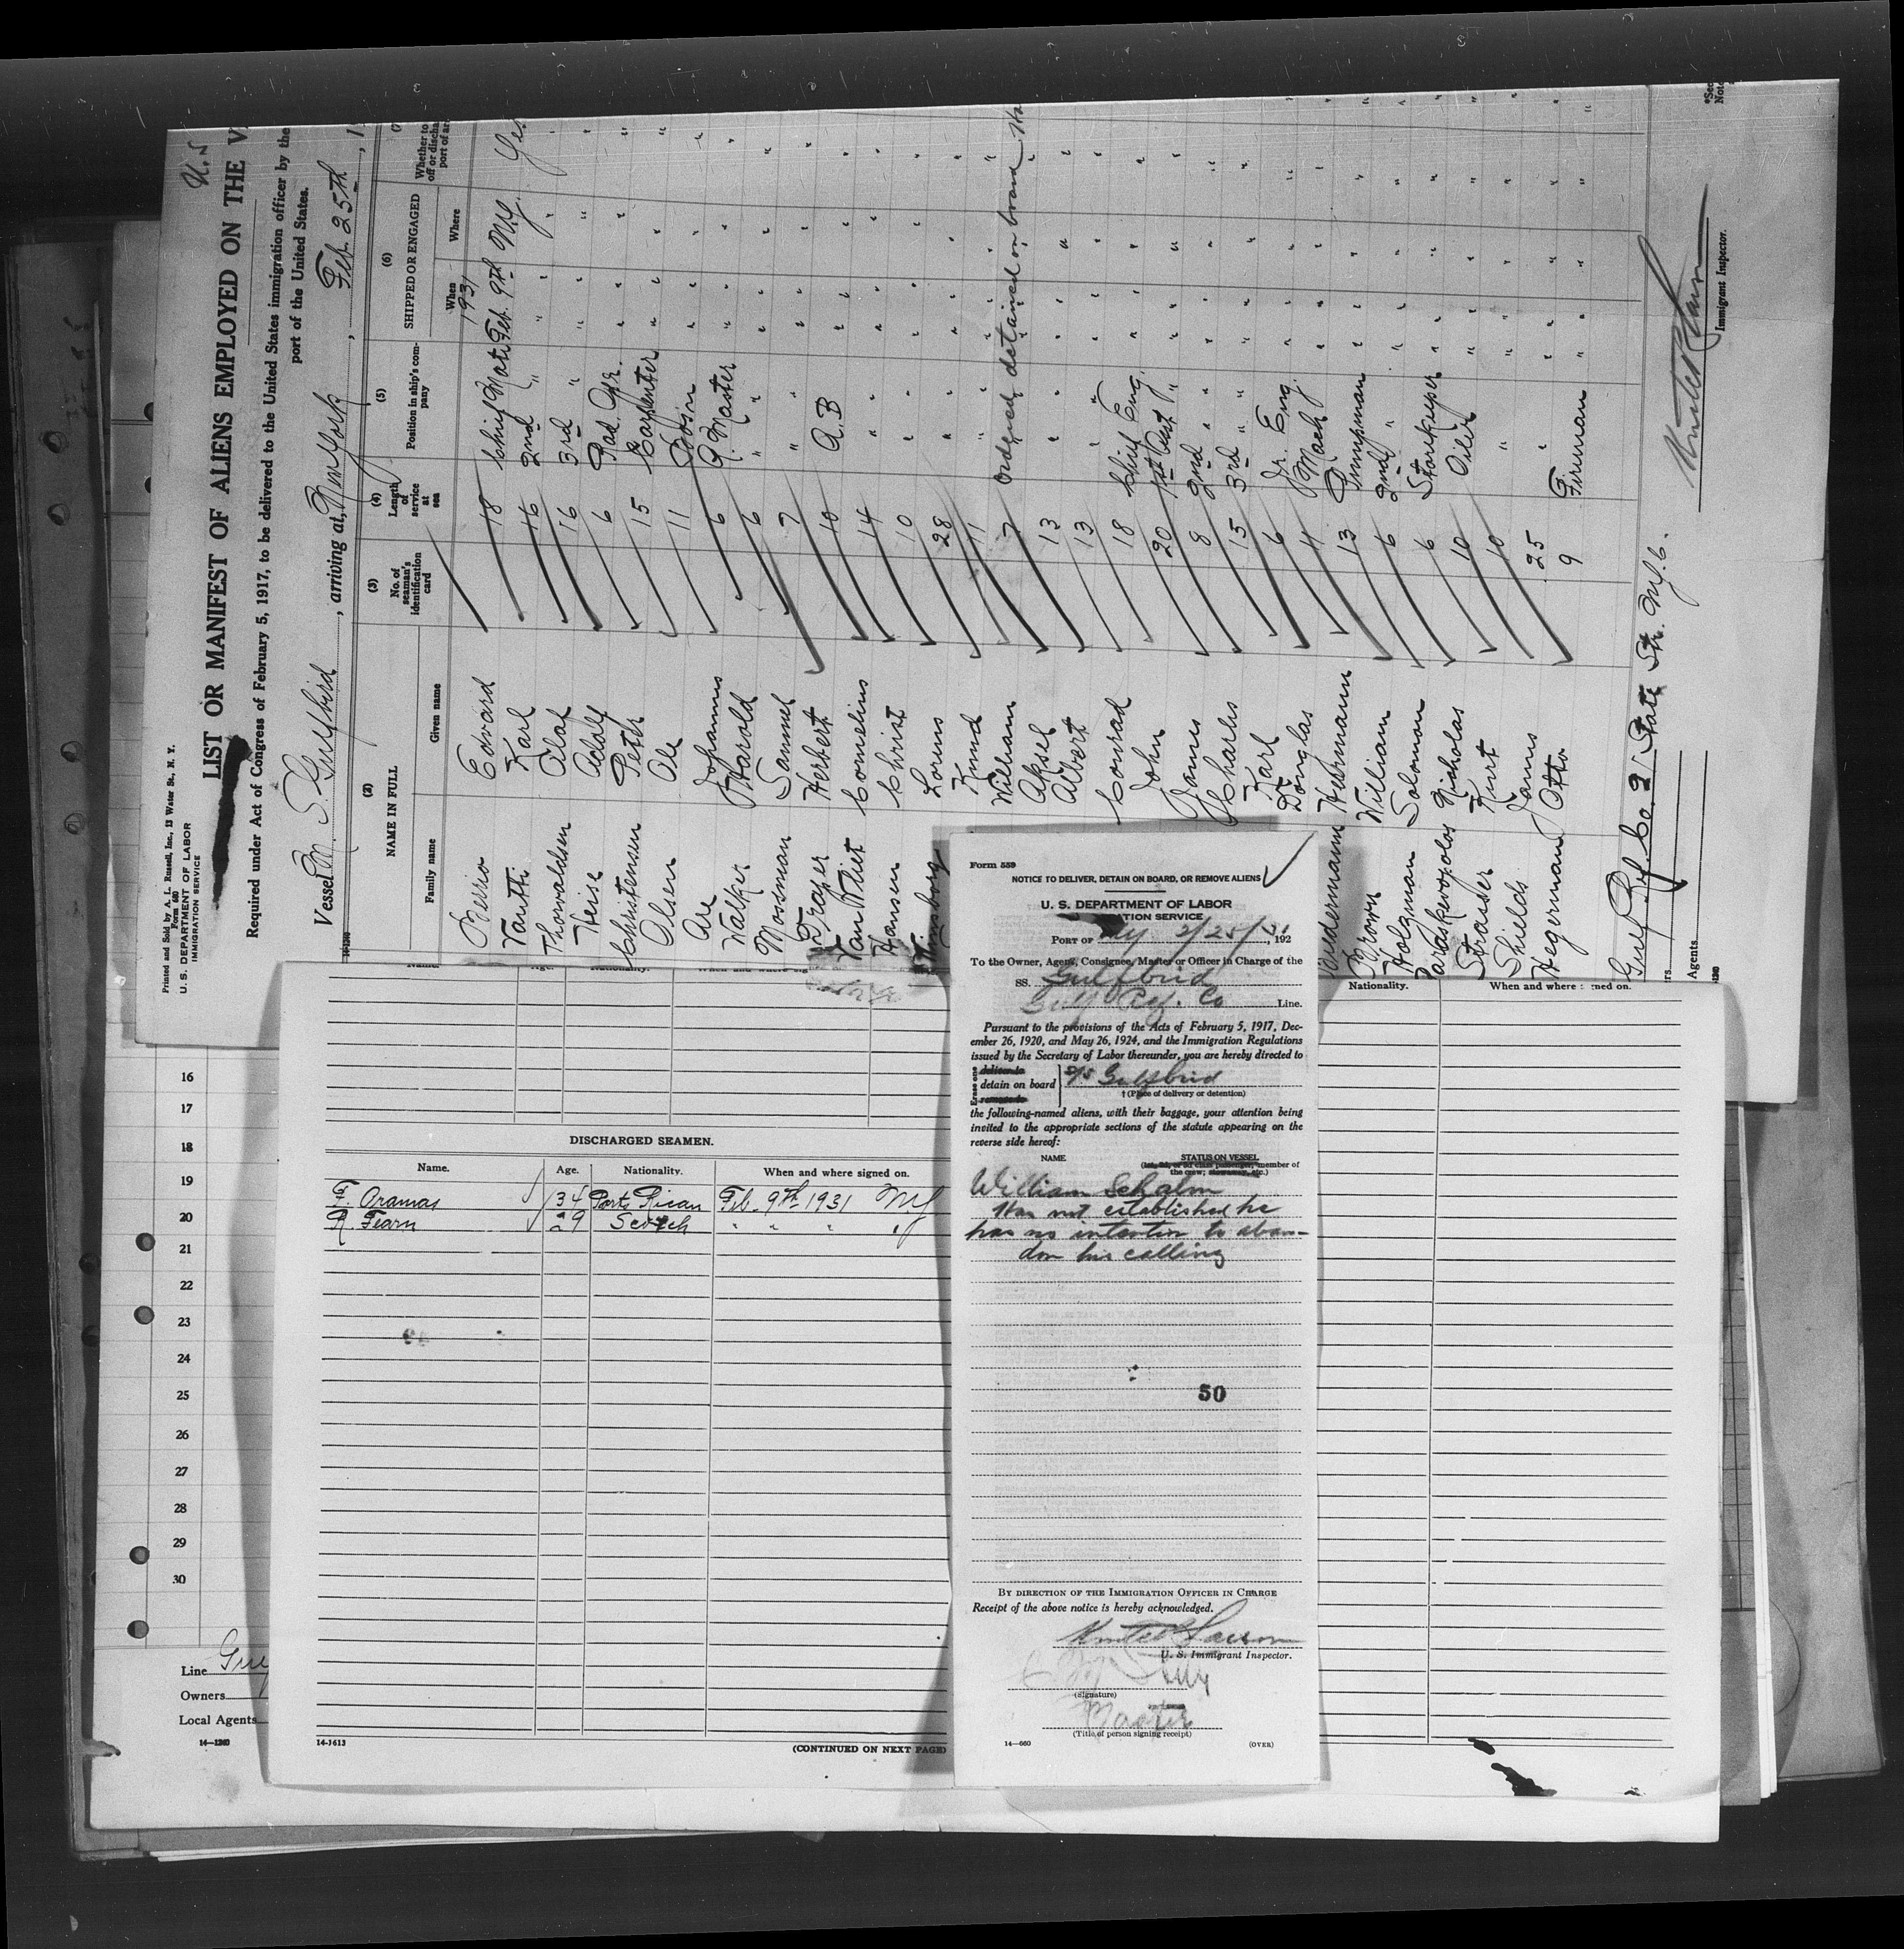 Printed and Sold by A. L. Russell, Inc., 13 Water St., N. Y.
Form 680
U. S. DEPARTMENT OF LABOR
IMMIGRATION SERVICE
U. S
LIST OR MANIFEST OF ALIENS EMPLOYED ON THE V
Required under Act of Congress of February 5, 1917, to be delivered to the United States immigration officer by the
port of the United States.
Vessel M. S. Gulfbird, arriving at, New York, Feb. 25th, 1
(2) NAME IN FULL
Family name Given name
(3) No. of seaman's identification card
(4) Length of service at sea
(5) Position in ship's company
(6) SHIPPED OR ENGAGED
When Where
1931
Whether to
off or discha
port of ar
Edvard 18 Chief Mate Feb. 9th N.Y. Yes
Karl 16 2nd " " " "
Thorvaldsen Olaf 16 3rd " " " "
Heise Adolf 6 Rad. Opr. " " "
Christensen Peter 15 Carpenter " " "
Olsen Ole 11 Bos'n " " "
Are Johannes 6 Q. Master " " "
Walker Harold 6 " " " "
Mossman Samuel 7 " " " "
Draper Herbert 10 A.B " " "
Van Vliet Cornelius 14 " " " "
Hansen Christ 10 " " " "
Lorens 28 " " " "
Knud 11 " " " "
William 7 Ordered detained on board
Aksel 13 " " " "
Albert 13 " " " "
Conrad 18 Chief Eng. " " "
John 20 1st Asst " " " "
James 8 2nd " " " "
Charles 15 3rd " " " "
Karl 6 Jr. Eng. " " "
Douglas 4 Mach " " "
Hermann 13 Pumpman " " "
Brown William 6 2nd " " " "
Holzman Solomon 6 Storekeeper " " "
Nicholas 10 Oiler " " "
Strasser Kurt 10 " " " "
Shields James 25 " " " "
Hegerman Otto 9 Fireman " " "
Gulf Ref. Co. 21 State St. N.Y.C.
Agents
Immigrant Inspector.
16
17
18
19
20
21
22
23
24
25
26
27
28
29
30
Line
Owners
Local Agents
14—1240
DISCHARGED SEAMEN.
Name. Age. Nationality. When and where signed on.
F. Oramas 34 Porto Rican Feb. 9th 1931 NY
R. Fearn 29 Scotch " " "
14-1613
(CONTINUED ON NEXT PAGE)
Nationality. When and where signed on.
Form 559
NOTICE TO DELIVER, DETAIN ON BOARD, OR REMOVE ALIENS
U. S. DEPARTMENT OF LABOR
ATION SERVICE
PORT OF NY 2/25/31, 192
To the Owner, Agent, Consignee, Master or Officer in Charge of the
SS. Gulfbird
Gulf Ref. Co Line.
Pursuant to the provisions of the Acts of February 5, 1917, Dec-
ember 26, 1920, and May 26, 1924, and the Immigration Regulations
issued by the Secretary of Labor thereunder, you are hereby directed to
Erase one
deliver to
detain on board S/S Gulfbird
remove to
† (Place of delivery or detention)
the following-named aliens, with their baggage, your attention being
invited to the appropriate sections of the statute appearing on the
reverse side hereof:
NAME STATUS ON VESSEL
(1st, 2d, or 3d class passenger; member of
the crew; stowaway, etc.)
William Schalm
Has not established he
has no intention to aban-
don his calling
50
BY DIRECTION OF THE IMMIGRATION OFFICER IN CHARGE
Receipt of the above notice is hereby acknowledged.
U. S. Immigrant Inspector.
(Signature)
Master
(Title of person signing receipt)
14—660
(OVER)